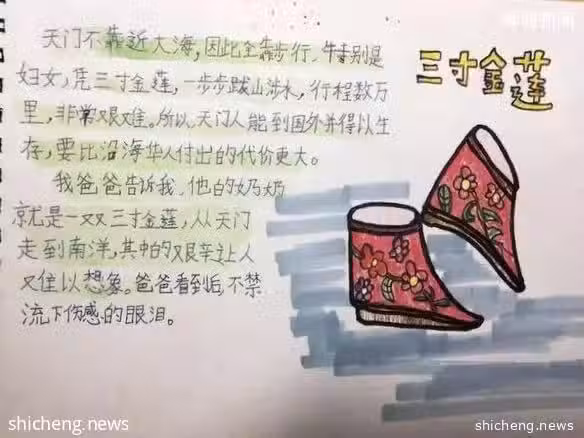 三寸金莲
天门不靠近大海,因此全靠步行、特别是
妇女,凭三寸金莲,一步步跋山涉水,行程数万
里,非常艰难。所以,天门人能到国外并得以生
存,要比沿海华人付出的代价更大。
我爸爸告诉我,他的奶奶
就是一双三寸金莲,从天门
走到南洋,其中的艰辛让人
难以想象。爸爸看到后,不禁
流下伤感的眼泪。
shicheng.news
shicheng.news